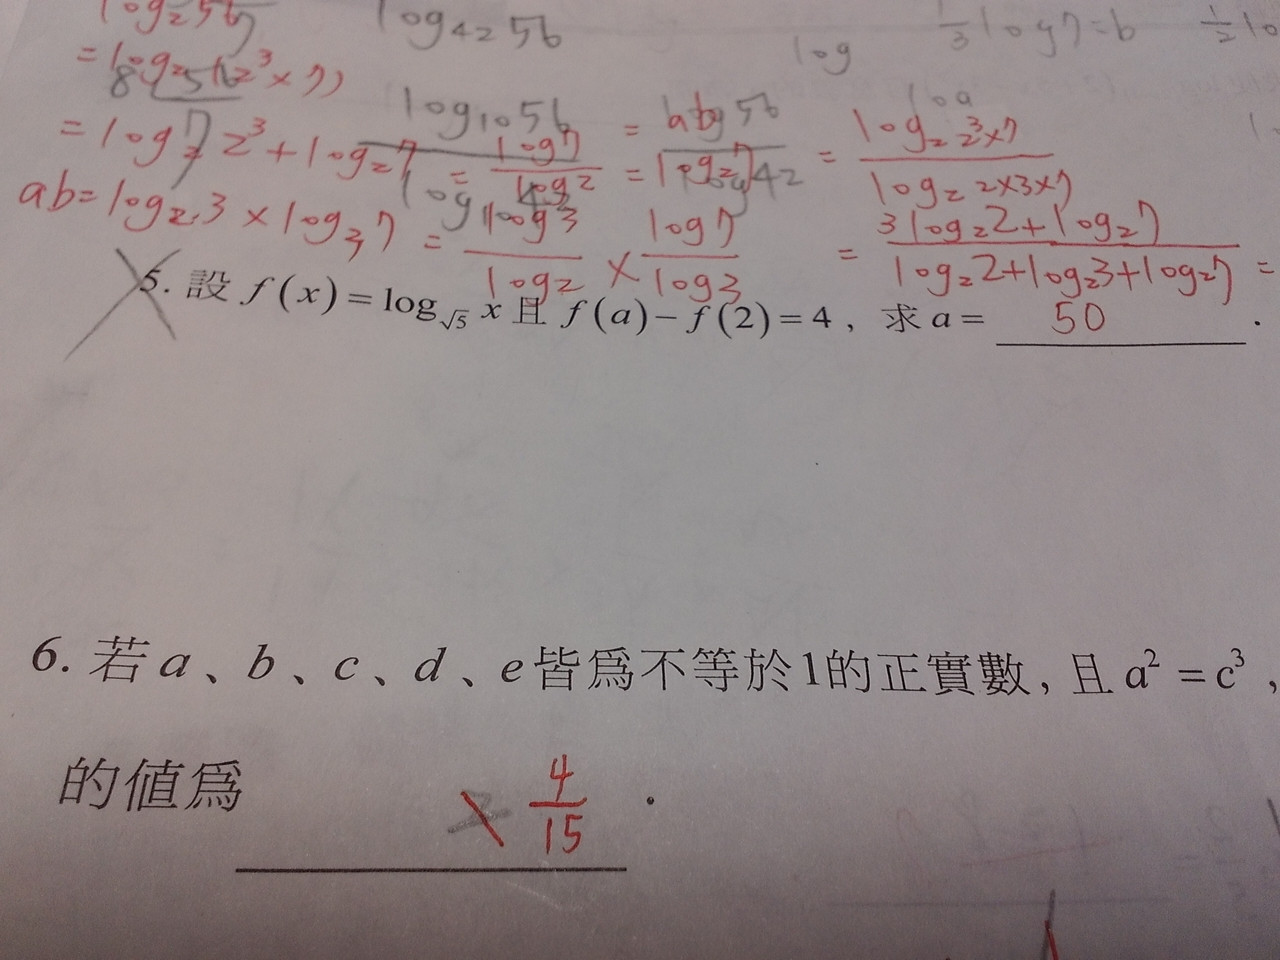 log₂56
log₄₂56
log
1/3 log7=b
1/2 lo
=log₂(2³×7)
log₁₀56
= log₂2³+log₂7 = log7/log2 = log₂7
= log₂2³×7 / log₂2×3×7
ab=log₂3×log₃7 = log3/log2 × log7/log3
= 3log₂2+log₂7 / log₂2+log₂3+log₂7 =
5. 設 f(x)=log_√5 x 且 f(a)−f(2)=4，求a= 50 .
6. 若a、b、c、d、e皆爲不等於1的正實數，且a²=c³，
的值爲 4/15 .